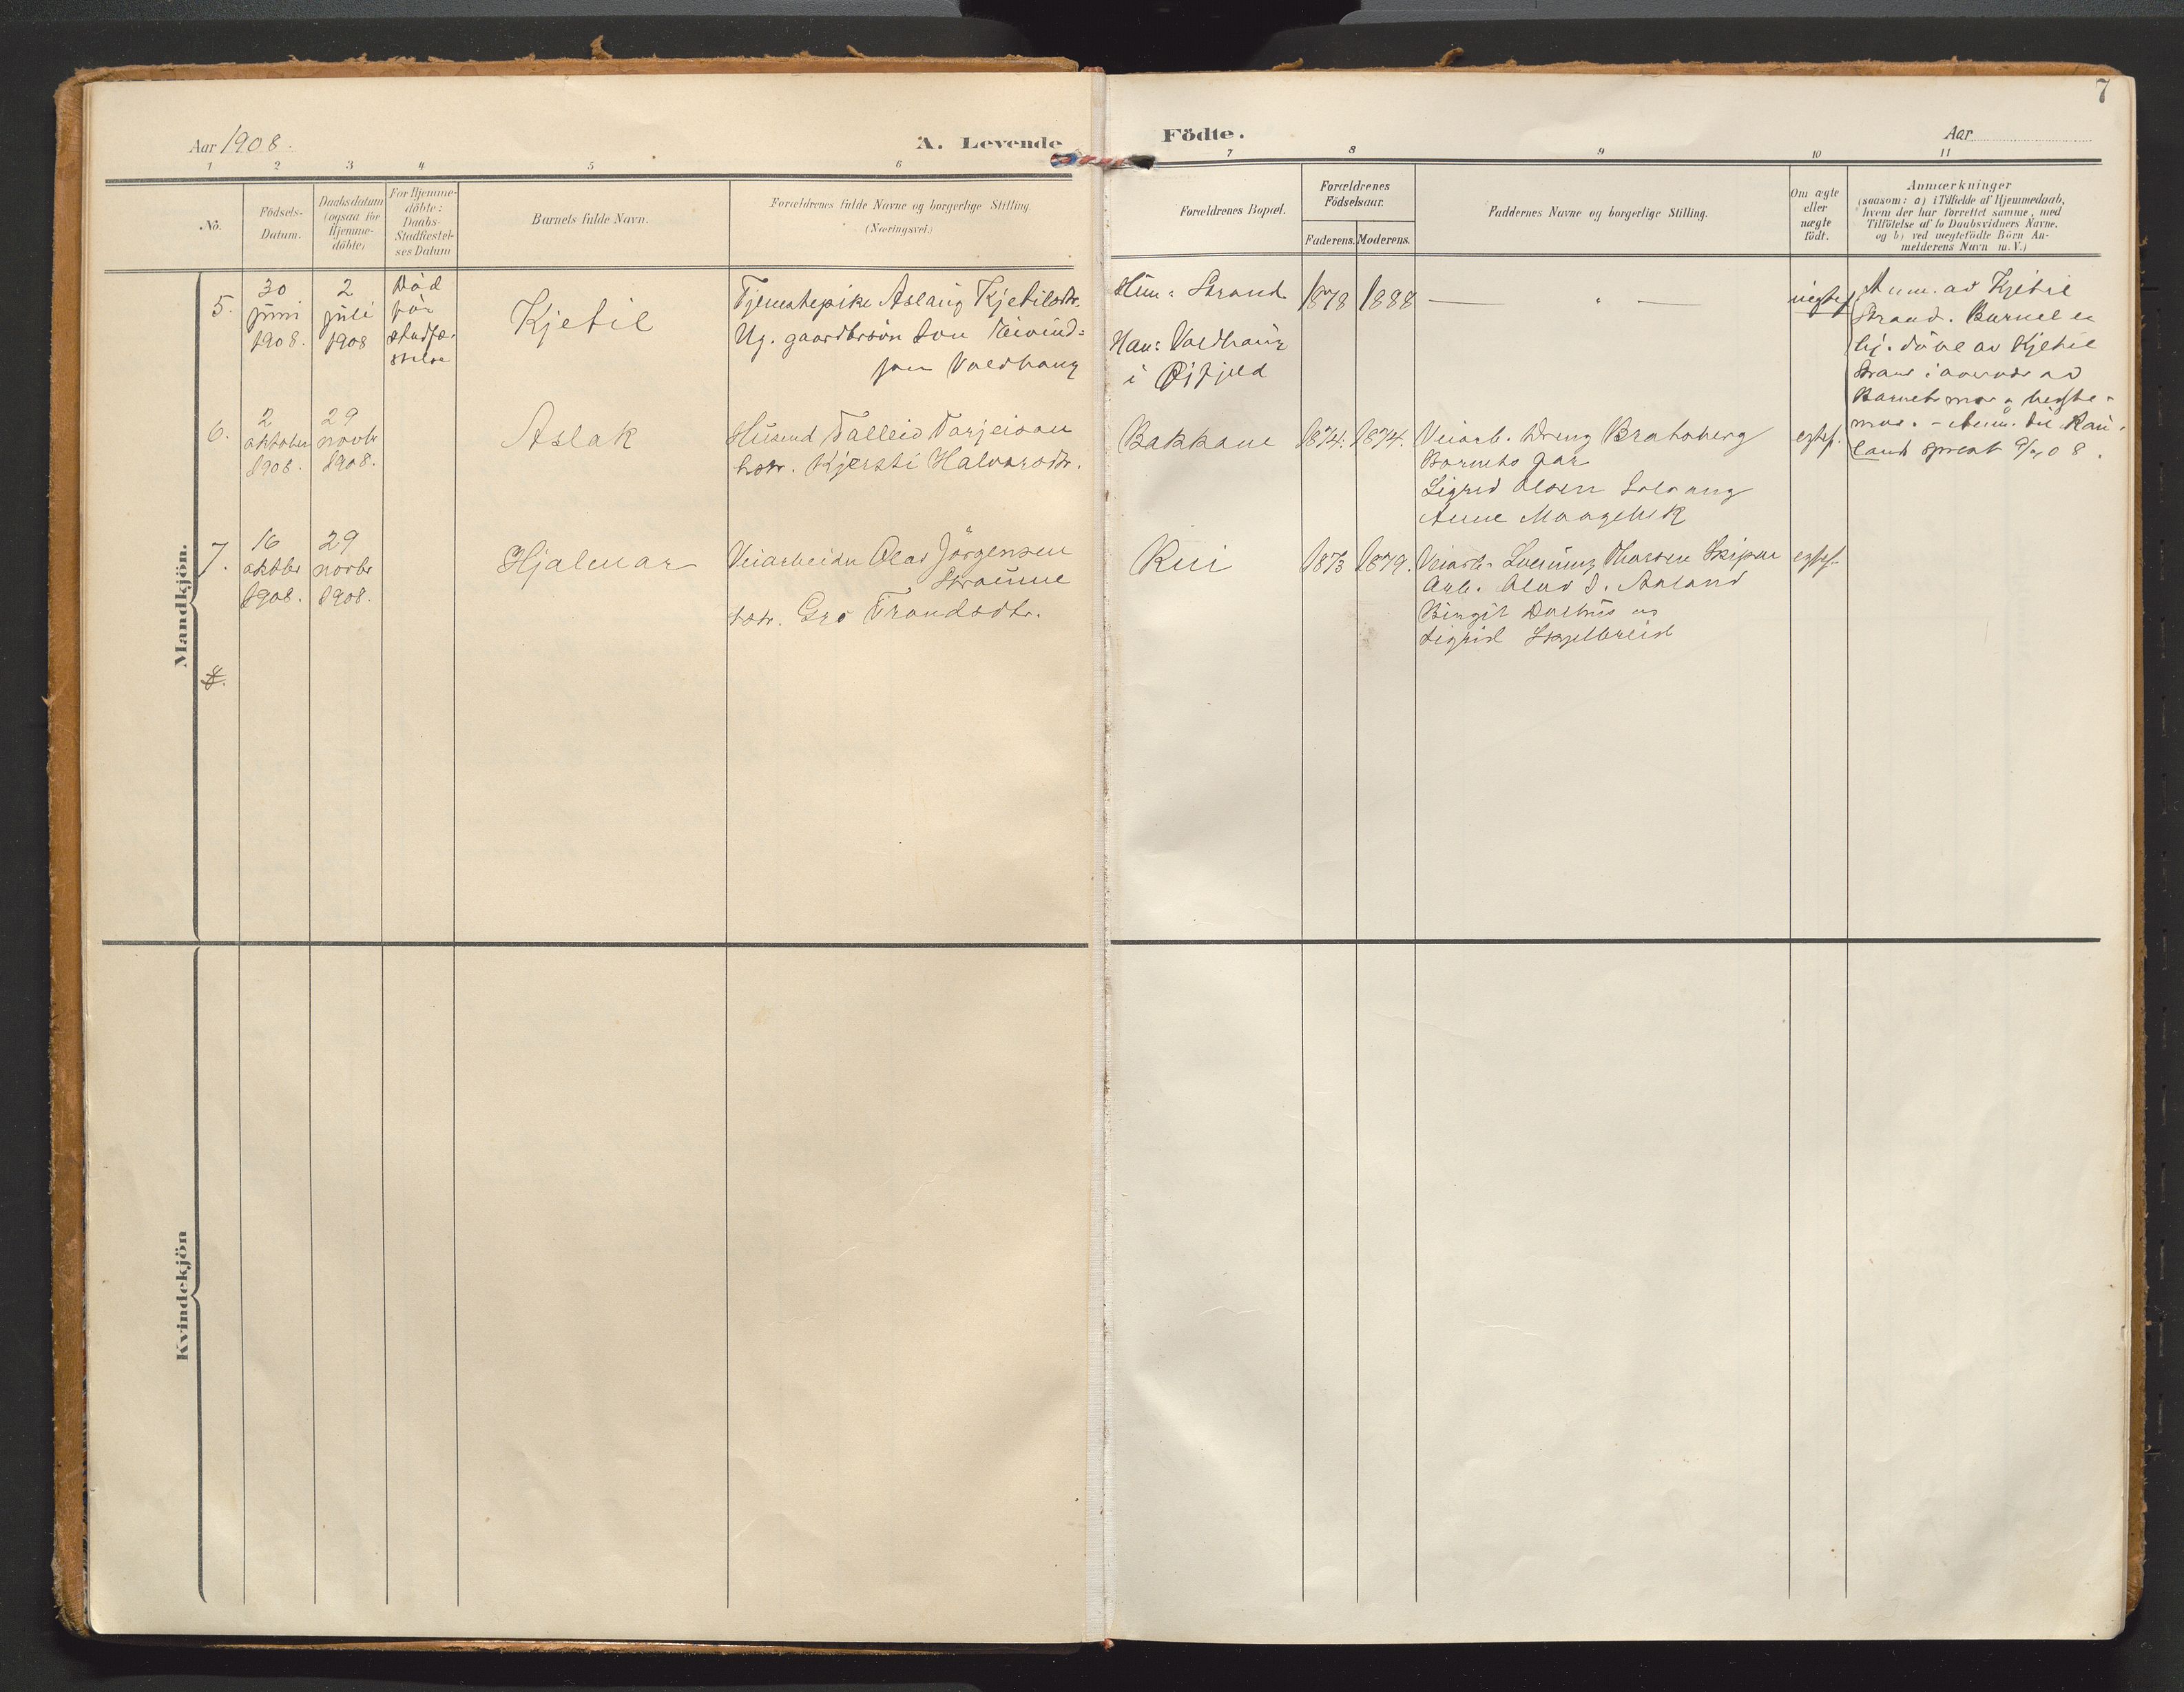 7
Aar 1908.
A. Levende
Födte.
Aar
1 2 3 4 5 6
7 8 9 10 11
No.
Födsels-
Datum.
Daabsdatum
(ogsaa for
Hjemme-
döbte)
For Hjemme-
döbte:
Daabs-
Stadfæstel-
ses Datum
Barnets fulde Navn.
Forældrenes fulde Navne og borgerlige Stilling.
(Næringsvei.)
Forældrenes Bopæl.
Forældrenes
Födselsaar.
Faderens. Moderens.
Faddernes Navne og borgerlige Stilling.
Om ægte
eller
uægte
födt.
Anmærkninger
(saasom: a) i Tilfælde af Hjemmedaab,
hvem der har forrettet samme, med
Tilföielse af to Daabsvidners Navne.
og b) ved uægtefödte Börn An-
melderens Navn m. V.)
Mandkjön.
5.
30
juni
1908.
2
juli
1908
Död
för
stadfæ-
stelse
Kjetil
Tjenestepike Aslaug Kjetilsdtr.
Ug. gaardbrsön Jon Eivind-
son Valdhaug
Hun: Strand
Han: Valdhaug
i
1878
1888
uegtef.
Anm. av Kjetil
Strand. Barnet er
hj. döbt av Kjetil
Strand i overvær av
Barnets mor og
mor. - Anm. til Rau-
land
6.
2
oktober
1908.
29
novbr
1908.
Aslak
Husmd Talleiv Tarjeisen
hstr. Kjersti Halvorsdtr.
Bakkane
1874.
1874.
Veiarb. Dreng Bratsberg
Barnets far
Sigrid Olsen
Anne
egtef.
7.
16
oktbr
1908.
29
novbr
1908.
Hjalmar
Veiarbeider Olav Jörgensen
Straume
hstr. Gro Trondsdtr.
Rui
1873
1879.
Veiarb. Sveinung
Arb. Olav S. Aaland
Birgit
Sigrid
egtef.
8.
Kvindekjön